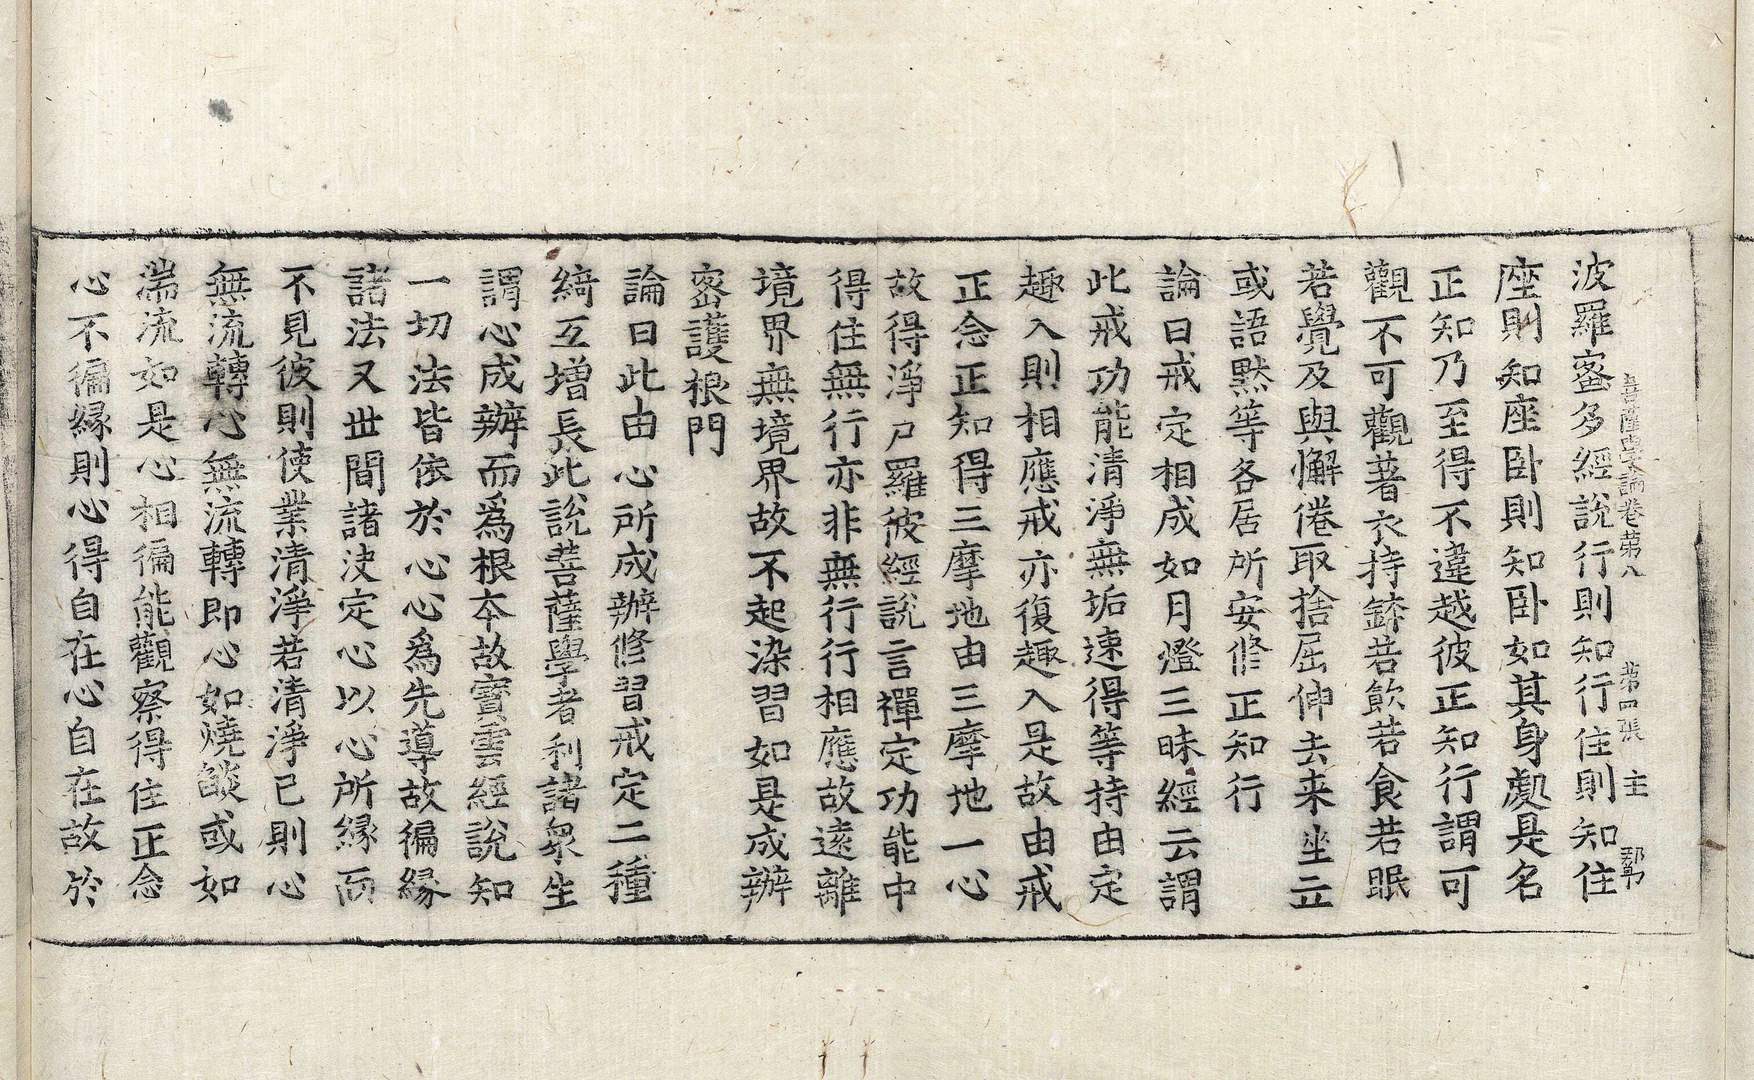 菩薩學論卷第八 第四張 主
波羅蜜多經說行則知行住則知住
座則知座卧則知卧如其身處是名
正知乃至得不違越彼正知行謂可
觀不可觀著衣持鉢若飲若食若眠
若覺及與懈倦取捨屈伸去来坐立
或語黙等各居所安修正知行
論曰戒定相成如月燈三昧經云謂
此戒功能清淨無垢速得等持由定
趣入則相應戒亦復趣入是故由戒
正念正知得三摩地由三摩地一心
故得淨尸羅彼經說言禪定功能中
得住無行亦非無行行相應故遠離
境界無境界故不起染習如是成辦
密護根門
論曰此由心所成辦修習戒定二種
綺互増長此說菩薩學者利諸衆生
謂心成辦而爲根本故寶雲經說知
一切法皆依於心心爲先導故徧緣
諸法又世間諸法定心以心所緣而
不見彼則使業清淨若清淨已則心
無流轉心無流轉即心如燒燄或如
湍流如是心相徧能觀察得住正念
心不徧緣則心得自在心自在故於